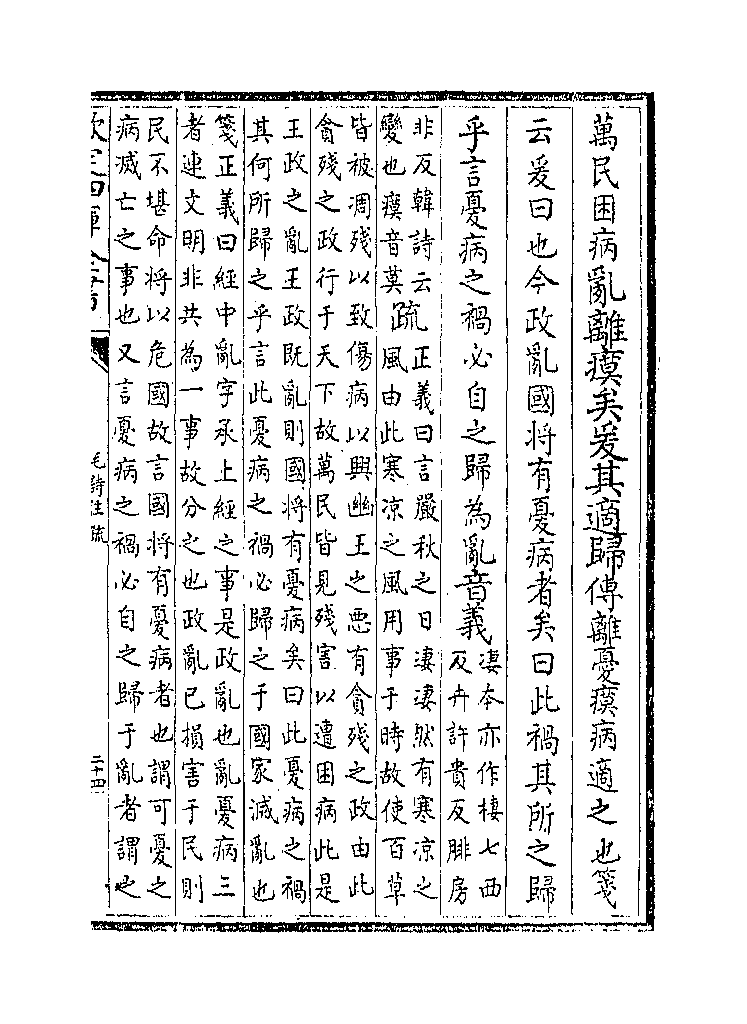 萬民困病亂離瘼矣爰其適歸傳離憂瘼病適之也箋
云爰曰也今政亂國將有憂病者矣曰此禍其所之歸
乎言憂病之禍必自之歸為亂音義
凄本亦作棲七西
反卉許貴反腓房
非反韓詩云
變也瘼音莫
疏
正義曰言嚴秋之日凄凄然有寒凉之
風由此寒凉之風用事于時故使百草
皆被凋殘以致傷病以興幽王之惡有貪殘之政由此
貪殘之政行于天下故萬民皆見殘害以遭困病此是
王政之亂王政既亂則國將有憂病矣曰此憂病之禍
其何所歸之乎言此憂病之禍必歸之于國家滅亂也
箋正義曰經中亂字承上經之事是政亂也亂憂病三
者連文明非共為一事故分之也政亂已損害于民則
民不堪命將以危國故言國將有憂病者也謂可憂之
病滅亡之事也又言憂病之禍必自之歸于亂者謂之
欽定四庫全書
毛詩注疏
二十四